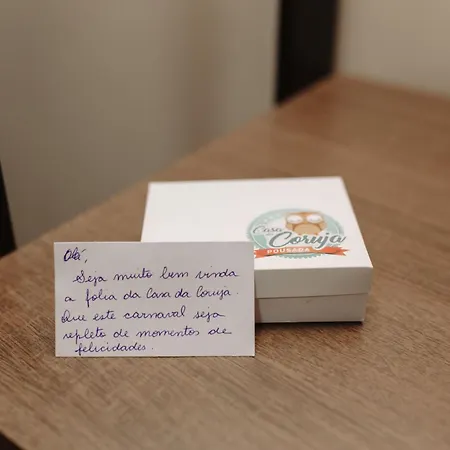 Olá,
Seja muito bem vinda
a folia da Casa da Coruja.
Que este carnaval seja
repleto de momentos de
felicidades.
Casa
da Coruja
POUSADA